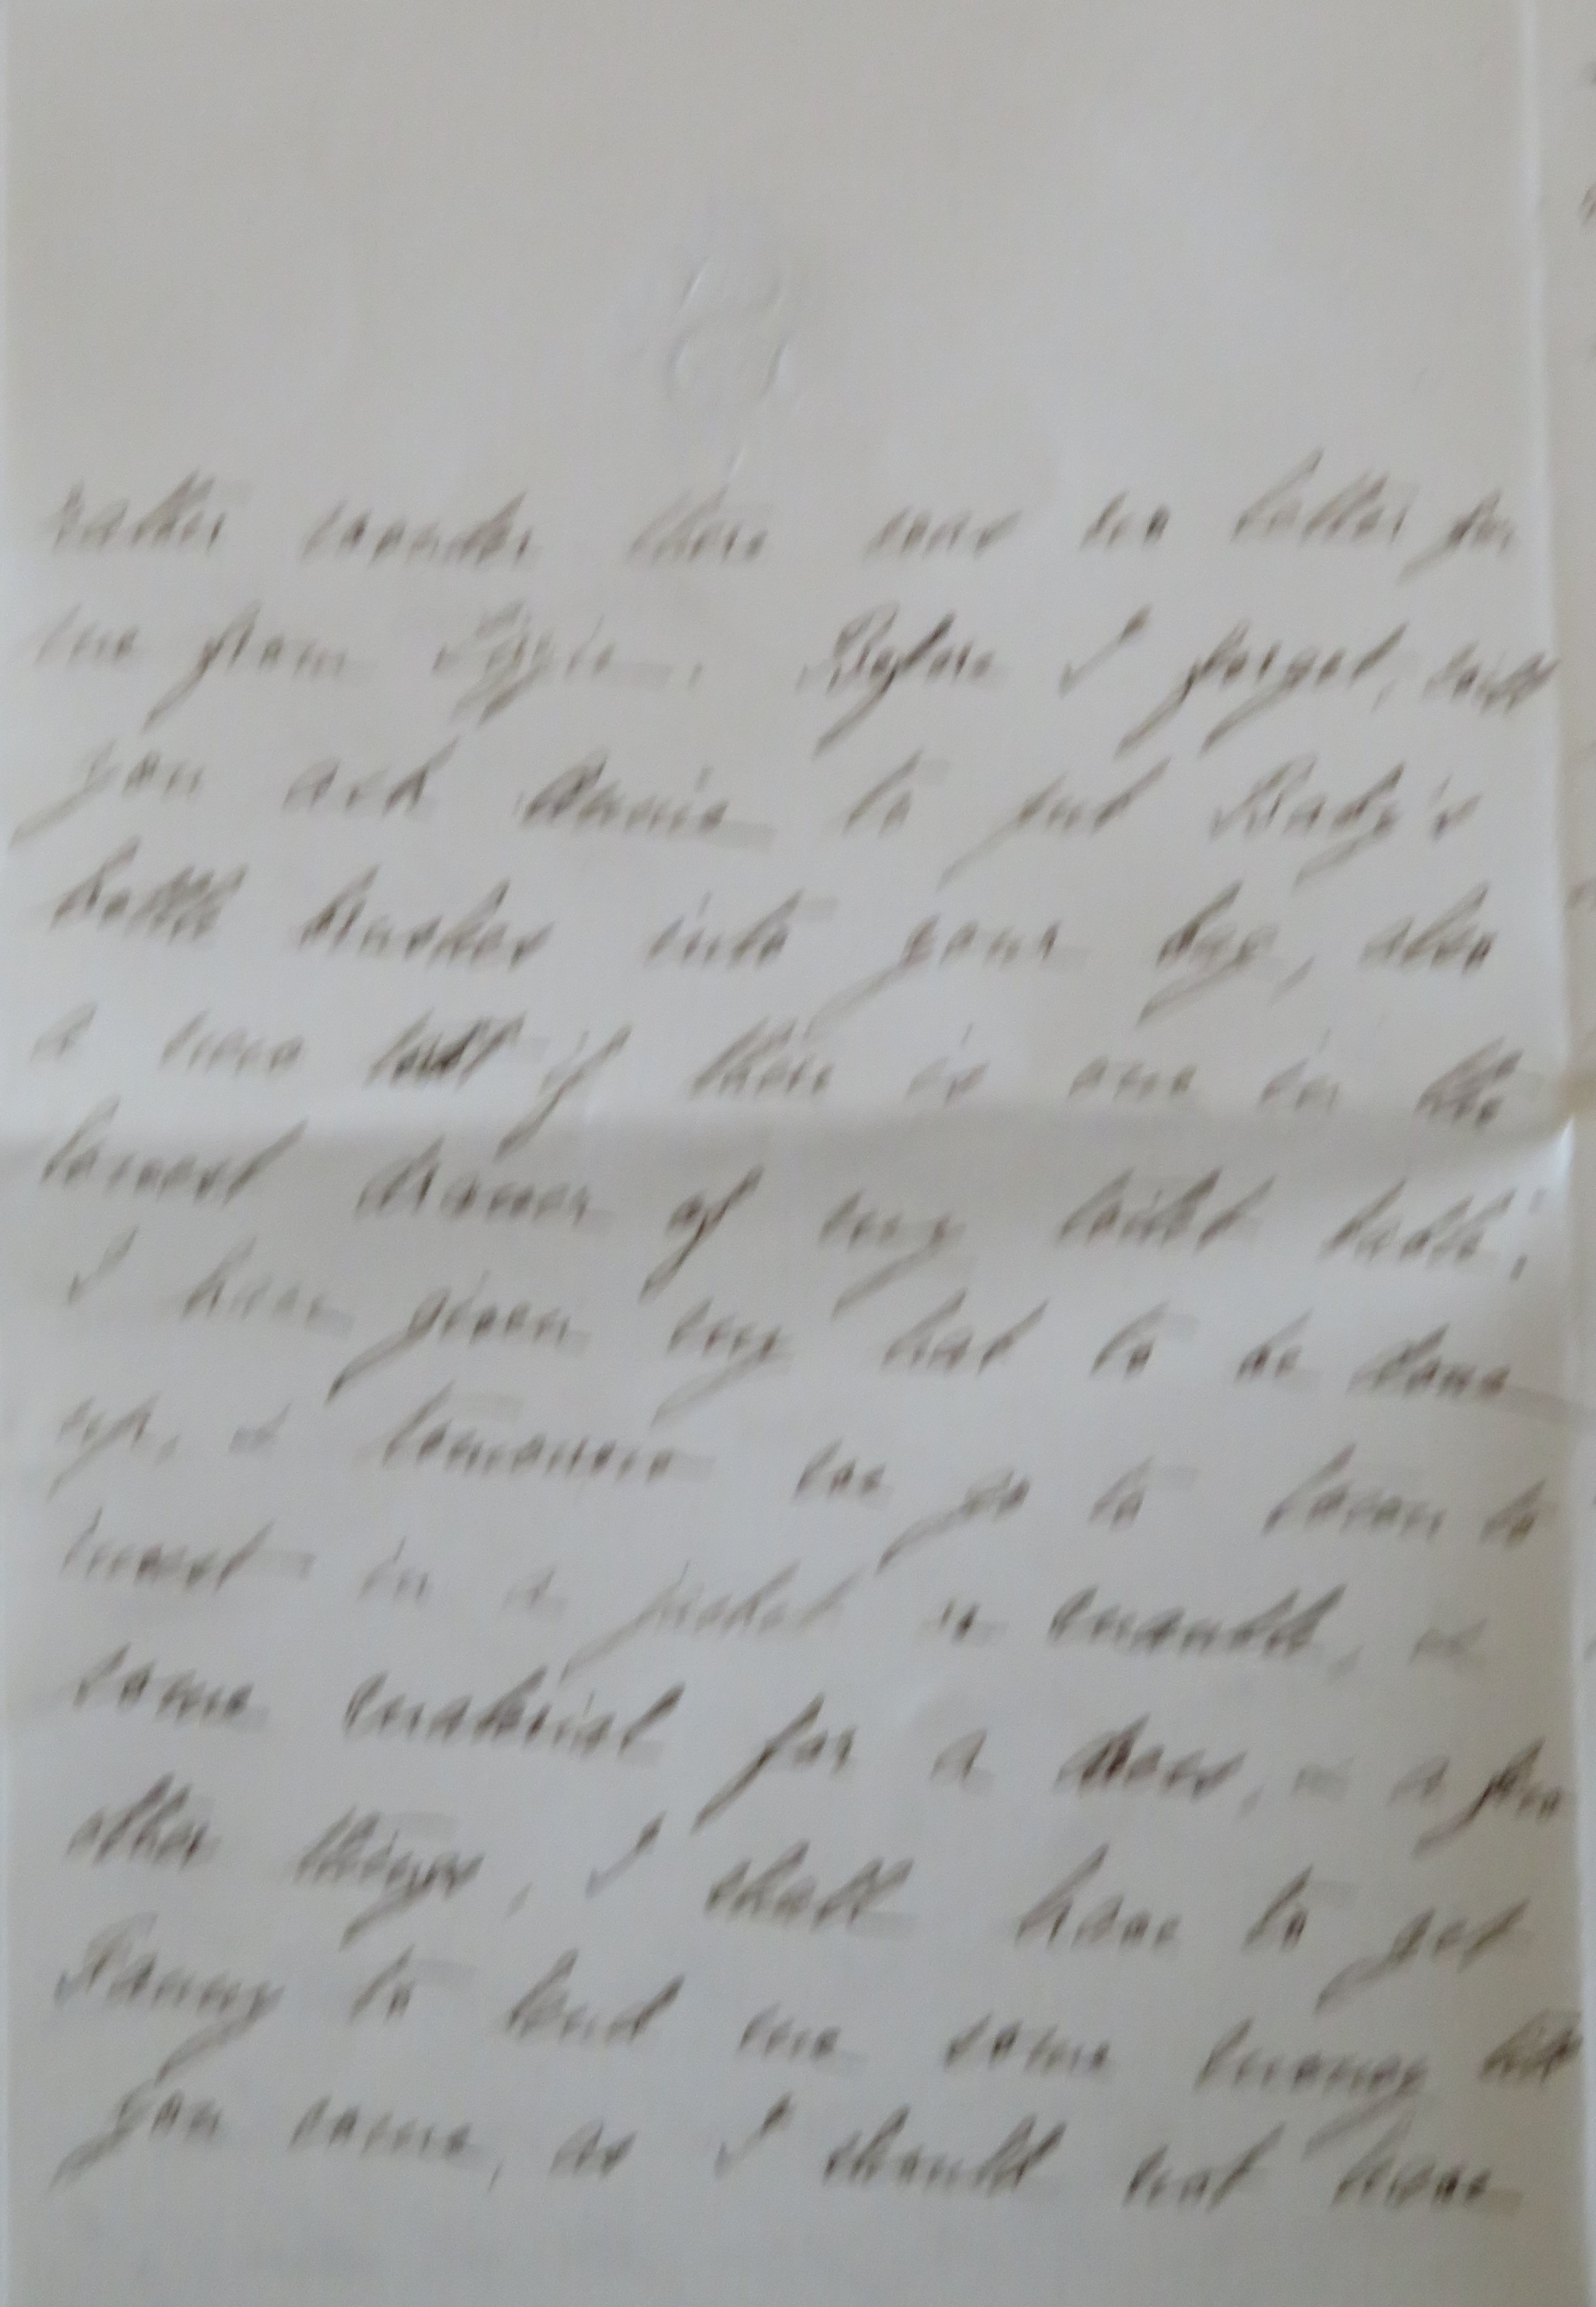 rather wonder there was no letter for
me from Lizzie. Before I forget, will
you ask Annie to put Baby's
bottle brushes into your bag, also
a new if there is one in the
lowest drawer of my toilet table;
I have given my hat to be done
up, & tomorrow we go to town to
invest in a jacket or mantle, &
some material for a dress, & a few
other things, I shall have to get
Fanny to lend me some money till
you come, as I should not have